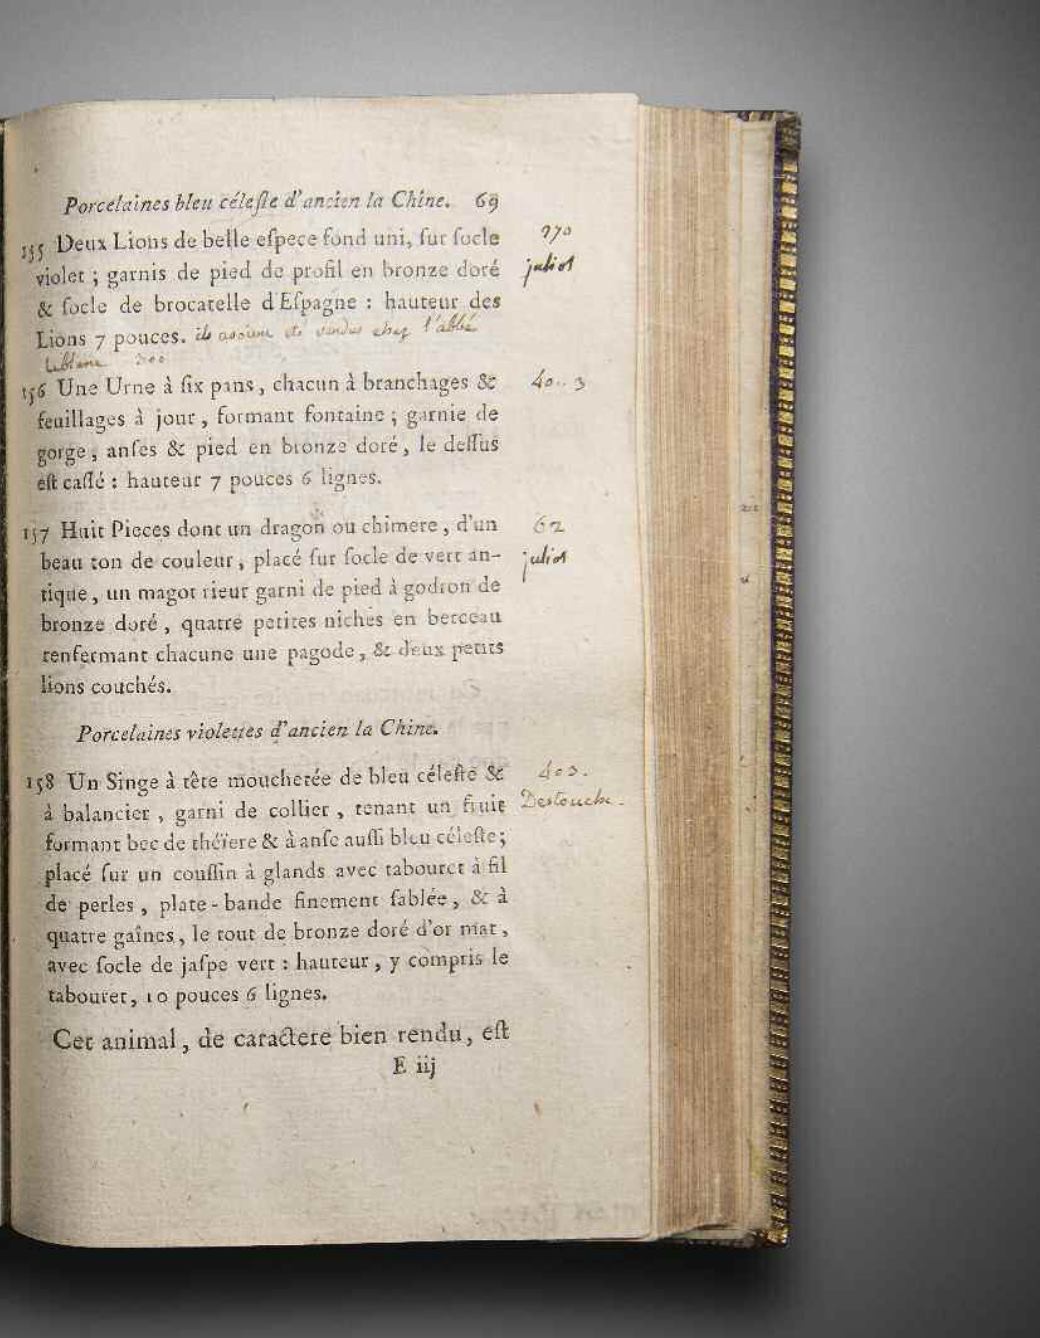 Porcelaines bleu céleſte d'ancien la Chine. 69
155 Deux Lions de belle eſpece fond uni, ſur ſocle
violet ; garnis de pied de profil en bronze doré
& ſocle de brocatelle d'Eſpagne : hauteur des
Lions 7 pouces. ils avoient été vendus chez l'abbé
leblanc 300
970
juliot
156 Une Urne à ſix pans, chacun à branchages &
feuillages à jour, formant fontaine ; garnie de
gorge, anſes & pied en bronze doré, le deſſus
eſt caſſé : hauteur 7 pouces 6 lignes.
40.. 3
157 Huit Pieces dont un dragon ou chimere, d'un
beau ton de couleur, placé ſur ſocle de vert an-
tique, un magot rieur garni de pied à godron de
bronze doré, quatre petites niches en berceau
renfermant chacune une pagode, & deux petits
lions couchés.
62
juliot
Porcelaines violettes d'ancien la Chine.
158 Un Singe à tête mouchetée de bleu céleſte &
à balancier, garni de collier, tenant un fruit
formant bec de théïere & à anſe auſſi bleu céleſte ;
placé ſur un couſſin à glands avec tabouret à fil
de perles, plate-bande finement ſablée, & à
quatre gaînes, le tout de bronze doré d'or mat,
avec ſocle de jaſpe vert : hauteur, y compris le
tabouret, 10 pouces 6 lignes.
403.
Destouche.
Cet animal, de caractere bien rendu, eſt
E iij